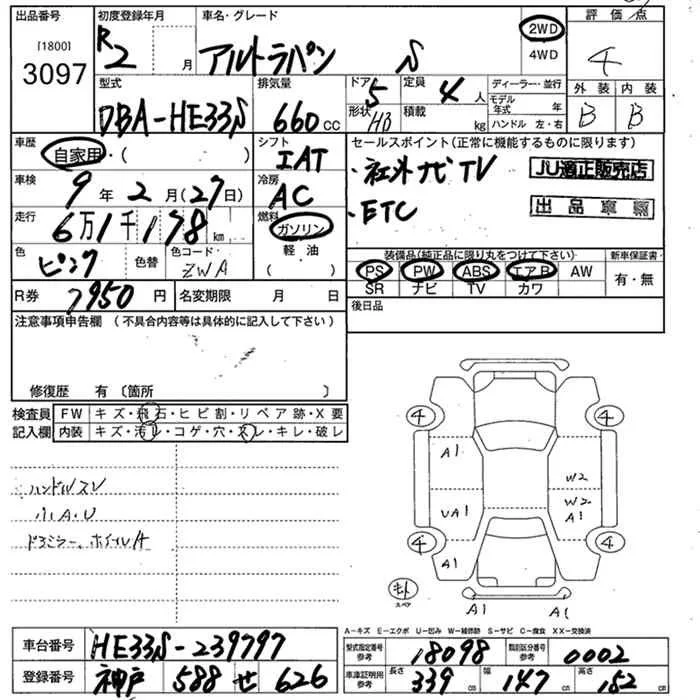 出品番号 初度登録年月 車名・グレード 評価点
[1800]
3097
R2 月 アルトラパン S 2WD 4WD 4
型式 排気量 ドア 定員 ディーラー・並行 外装 内装
DBA-HE33S 660cc 5 4人 モデル年式 年 B B
形状 HB 積載 kg ハンドル 左・右
車歴 自家用・( ) シフト IAT セールスポイント(正常に機能するものに限ります)
・社外ナビTV JU適正販売店
車検 9年2月(27日) 冷房 AC
・ETC 出品車票
走行 6万1千178km 燃料 ガソリン 軽・油 ( )
色 ピンク 色替 色コード ZWA
装備品(純正品に限り丸をつけて下さい) 新車保証書
PS PW ABS エアB AW 有・無
SR ナビ TV カワ
R券 7950円 名変期限 月 日 後日品
注意事項申告欄 (不具合内容等は具体的に記入して下さい)
修復歴 有 〔箇所 〕
検査員 FW キズ・飛石・ヒビ割・リペア跡・X要
記入欄 内装 キズ・汚レ・コゲ・穴・スレ・キレ・破レ
ハンドルスレ
小A・U
ドアミラー、ホイールA
4 4
A1
W2
UA1 W2
A1
4 4
A1
スペア
A1 A1
A−キズ E−エクボ U−凹み W−補修跡 S−サビ C−腐食 XX−交換済
車台番号 HE33S-239797
型式指定番号 参考 18098 類別区分番号 参考 0002
登録番号 神戸 588 せ 626
車庫証明用 参考 長さ 339cm 幅 147cm 高さ 152cm